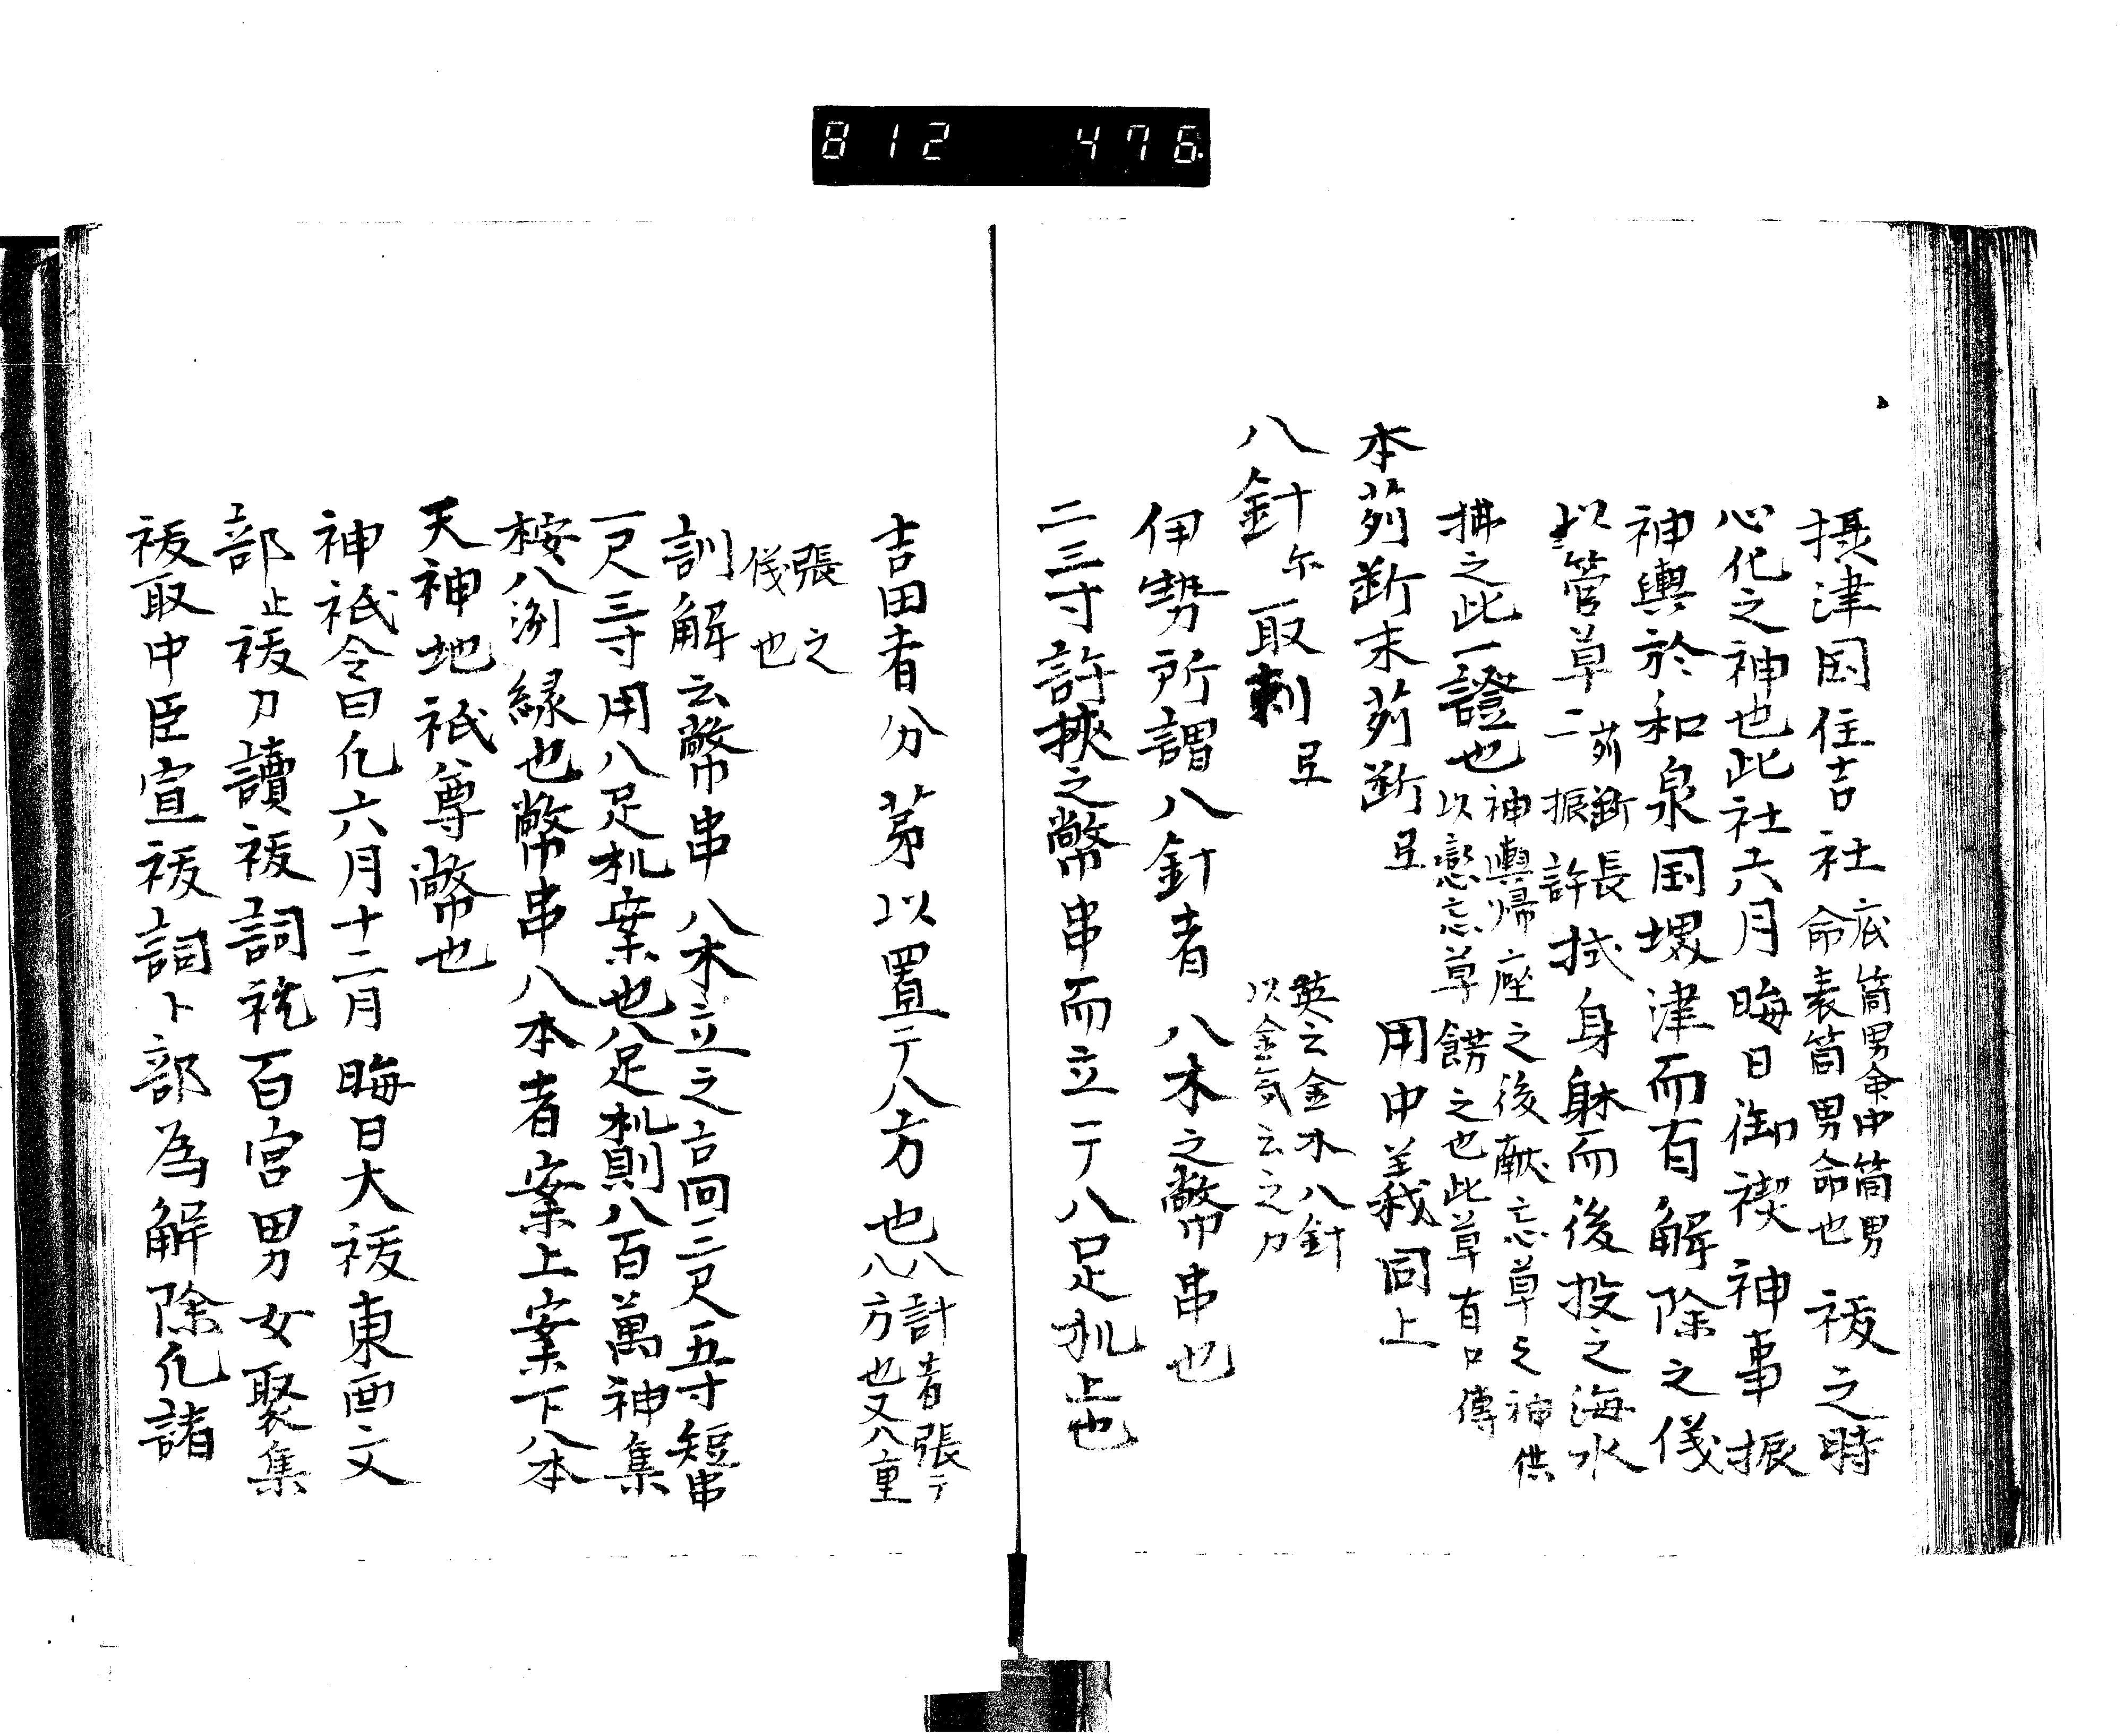 812 476
摂津国住吉社底筒男命中筒男命表筒男命也祓之時
心化之神也此社六月晦日御禊神事振
神輿於和泉国堺津而有解除之儀
以管草二苅断長振許拭身躰而後投之海水
拂之此一證也神輿帰座之後献忘草之神供以戀忘草餝之也此草有口傳
本苅断末苅断弖 用中義同上
八針尓取刺弖 英云金水八針以金気云之力
伊勢所謂八針者八木之幣串也
二三寸許挾之幣串而立于八足机上也
吉田者分苐以置于八方也八計者張于八方也又八重
張之儀也
訓解云幣串八木立之古回二尺五寸短串
一尺三寸用八足机案也八足机則八百萬神集
桉八洲緑也幣串八本者案上案下八本
天神地祇尊幣也
神祇令曰凢六月十二月晦日大祓東西文
部止祓刀讀祓詞訖百官男女聚集
祓取中臣宣祓詞卜部為解除凢諸